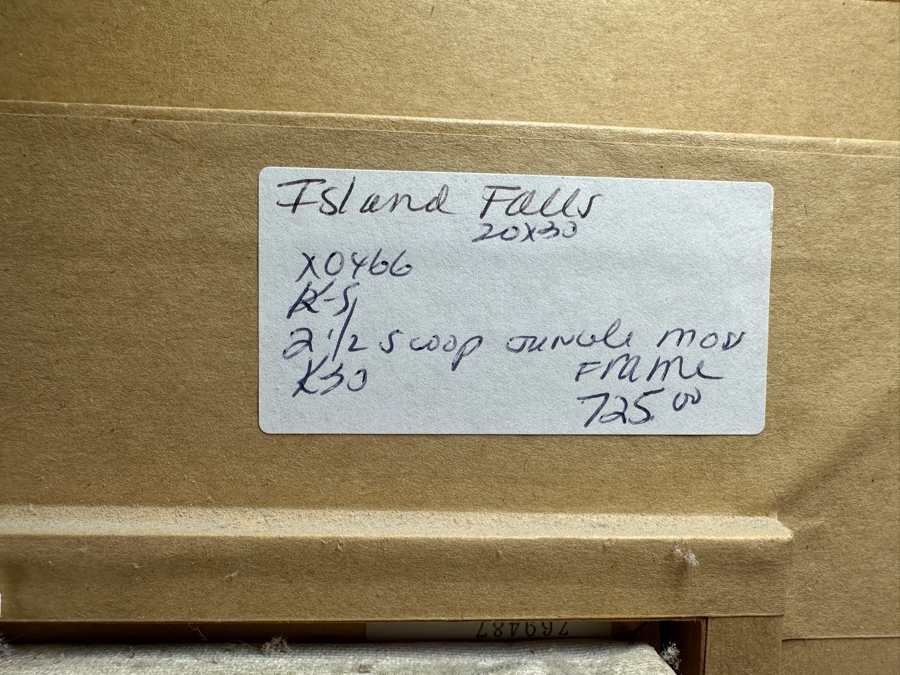 Island Falls
20x30
X0466
K-5
2 1/2 scoop JUNGLE MOD
FRAME
K30
725.00
769487